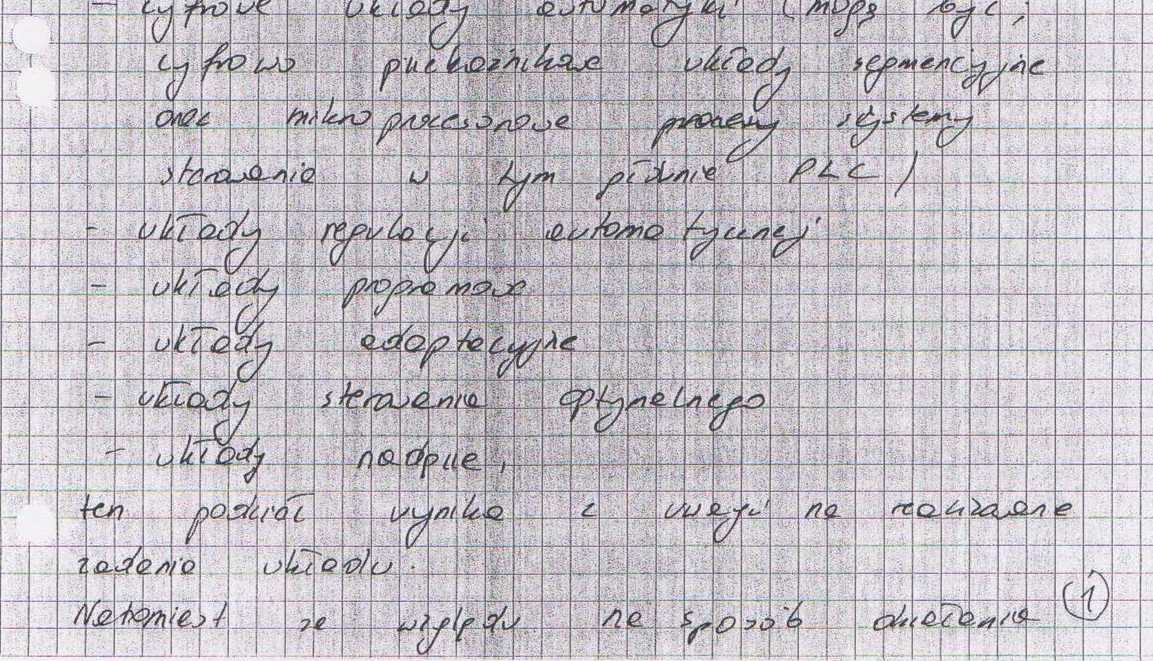 - cyfrowe układy automatyki (mogą być;
cyfrowo przekaźnikowe układy segmencyjne
oraz mikroprocesorowe procesy systemy
sterowania w tym również PLC)
- układy regulacji automatycznej
- układy programowe
- układy adaptacyjne
- układy sterowania optymalnego
- układy nadążne,
ten podział wynika z uwagi na realizowane
zadania układu.
Natomiast ze względu na sposób działania
1